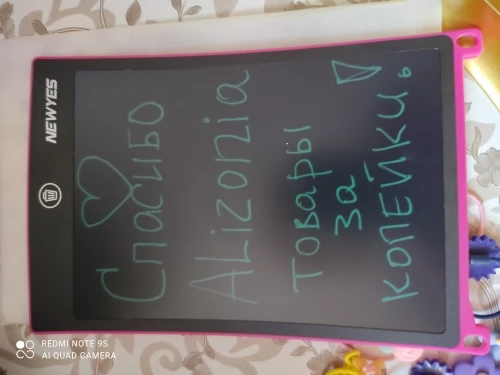 NEWYES
Спасибо
ALizonia
товары
за
КОПЕЙКИ
REDMI NOTE 9S
AI QUAD CAMERA